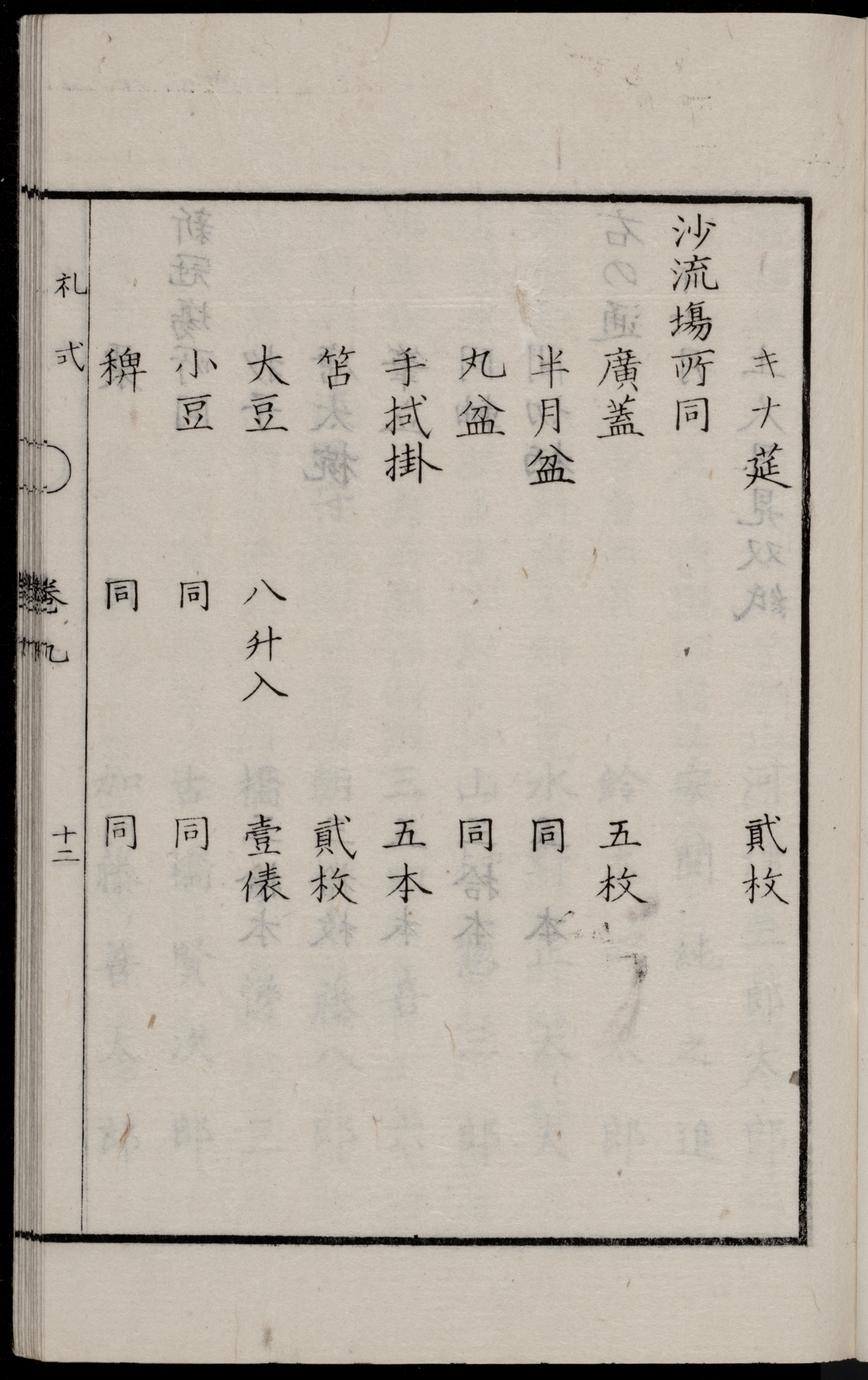 キナ莚 貳枚
沙流塲所同
廣蓋 五枚
半月盆 同
丸盆 同
手拭掛 五本
筥 貳枚
大豆 八升入 壹俵
小豆 同 同
稗 同 同
礼式 卷九 十二